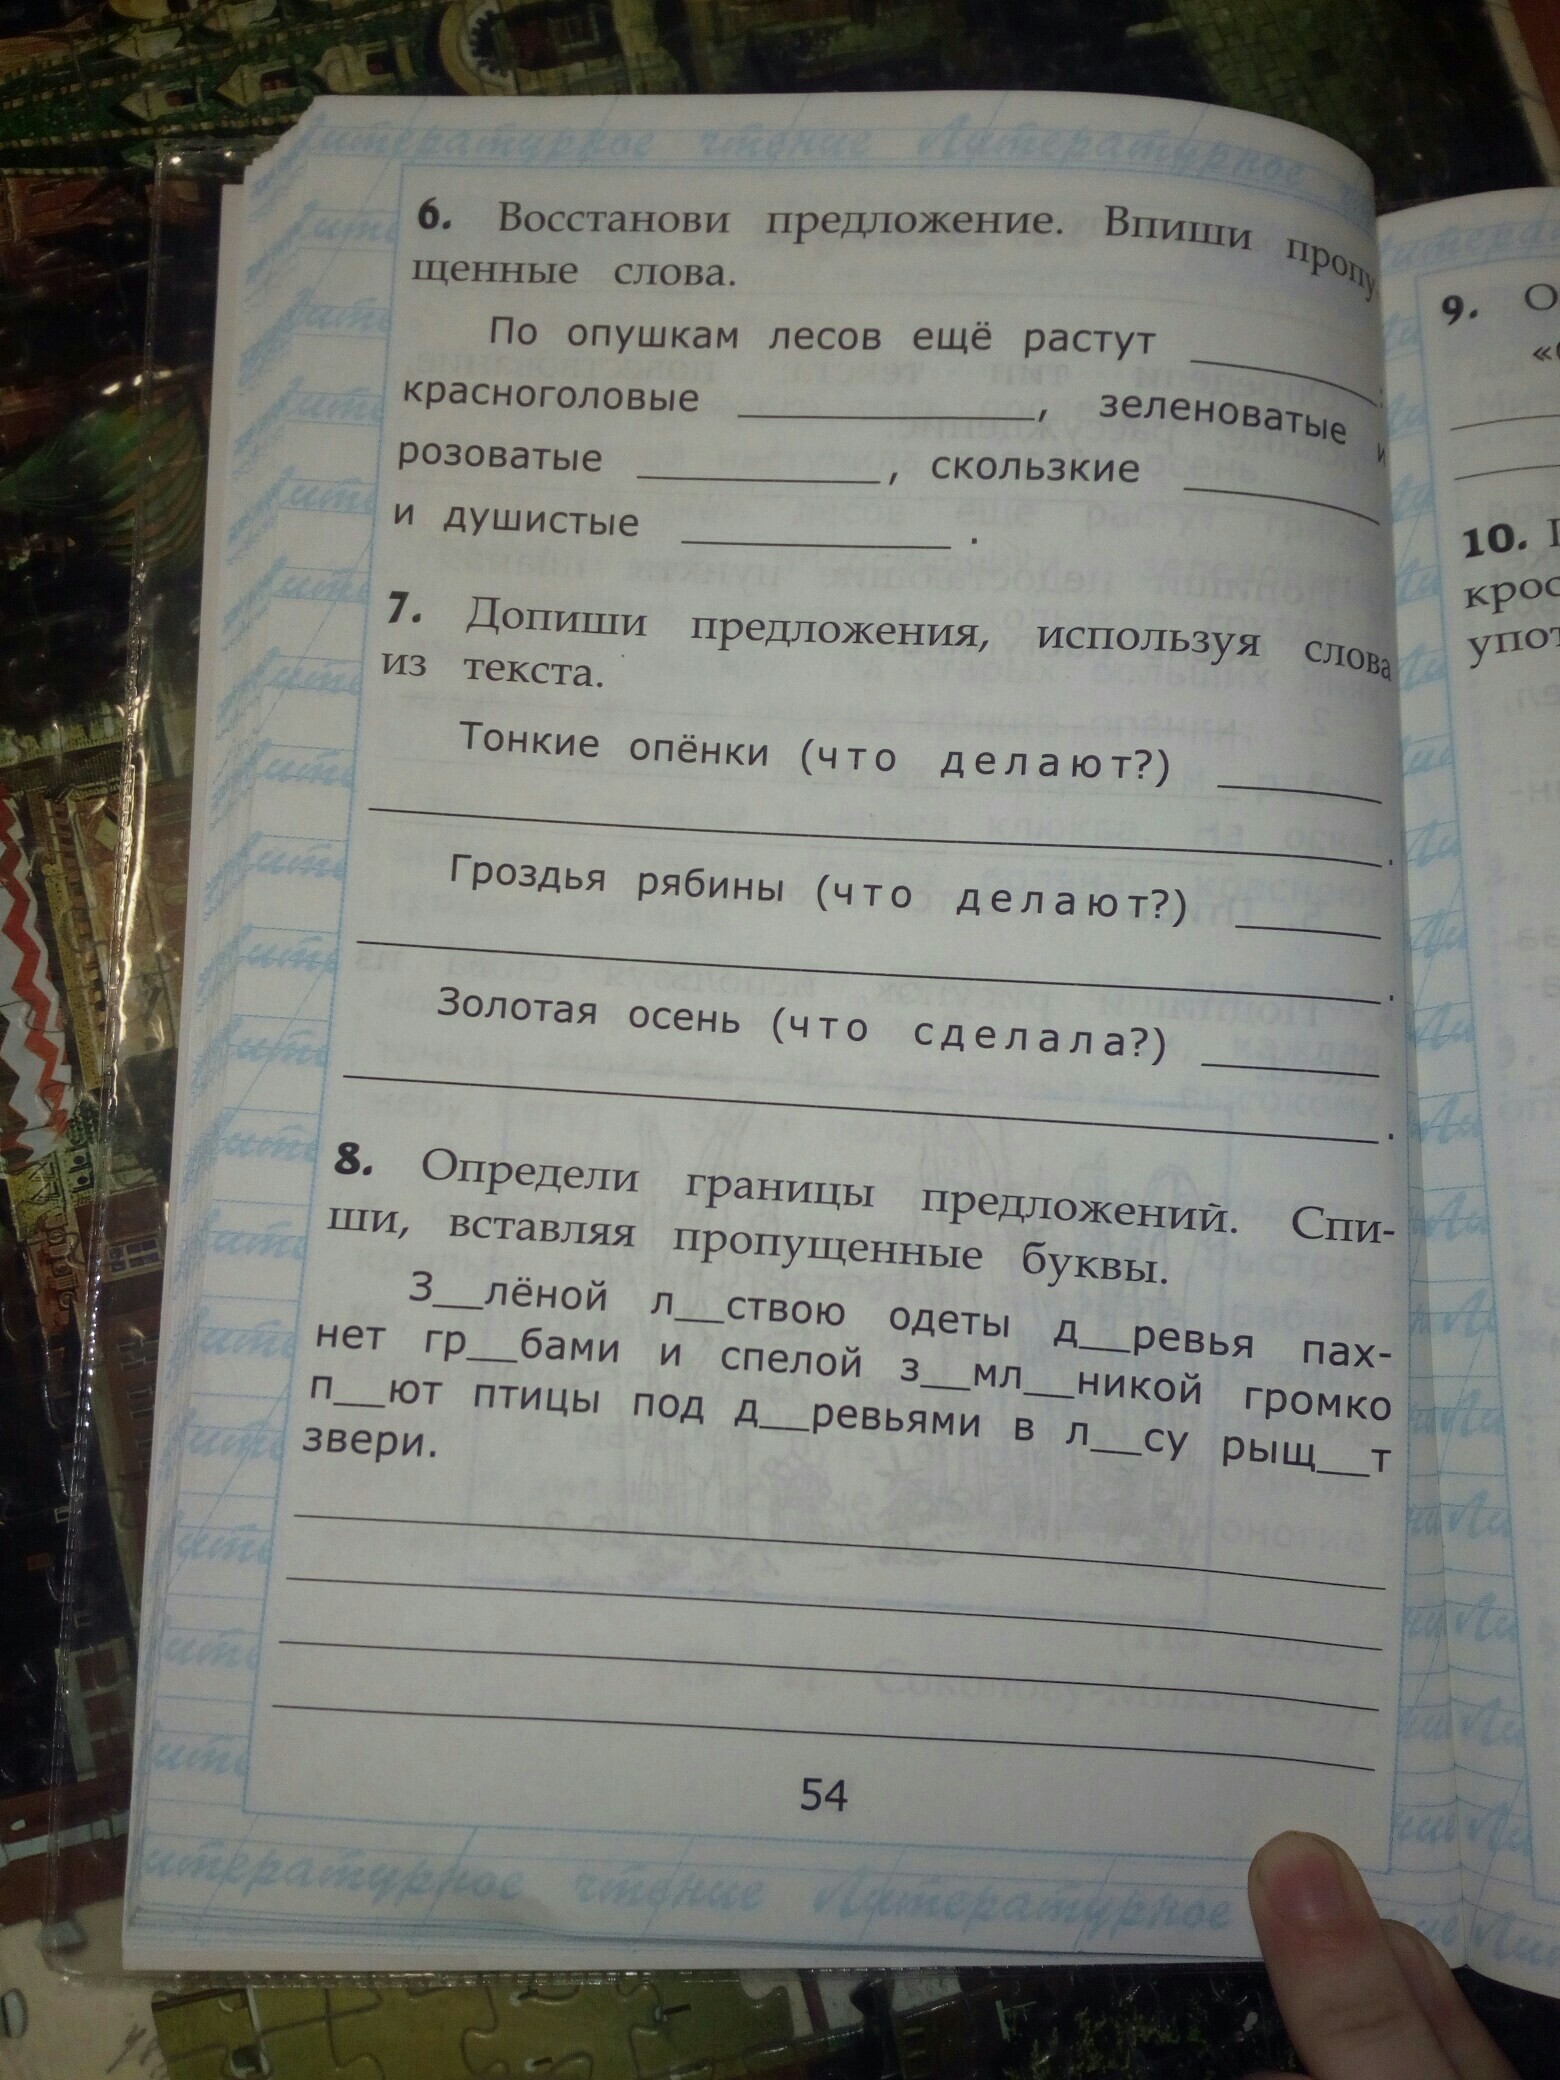 Литературное чтение Литературное
6. Восстанови предложение. Впиши пропу
щенные слова.
По опушкам лесов ещё растут ________:
красноголовые ____________, зеленоватые и
розоватые __________, скользкие ________
и душистые ___________ .
7. Допиши предложения, используя слова
из текста.
Тонкие опёнки (что делают?) _______
________________________________________.
Гроздья рябины (что делают?) ______
________________________________________.
Золотая осень (что сделала?) _______
________________________________________.
8. Определи границы предложений. Спи-
ши, вставляя пропущенные буквы.
З__лёной л__ствою одеты д__ревья пах-
нет гр__бами и спелой з__мл__никой громко
п__ют птицы под д__ревьями в л__су рыщ__т
звери.
54
чтение Литературное
9. О
10.
крос
упот